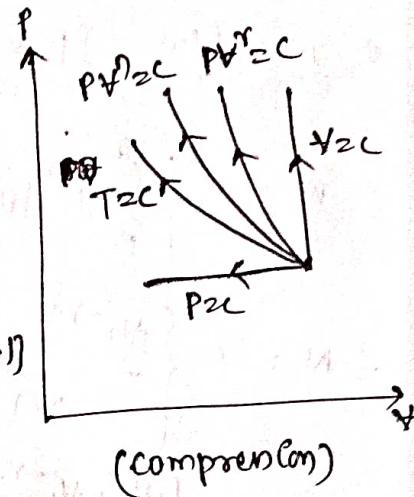 P
PVⁿ=C PVʳ=C
V=C
T=C
P=C
V
(compression)